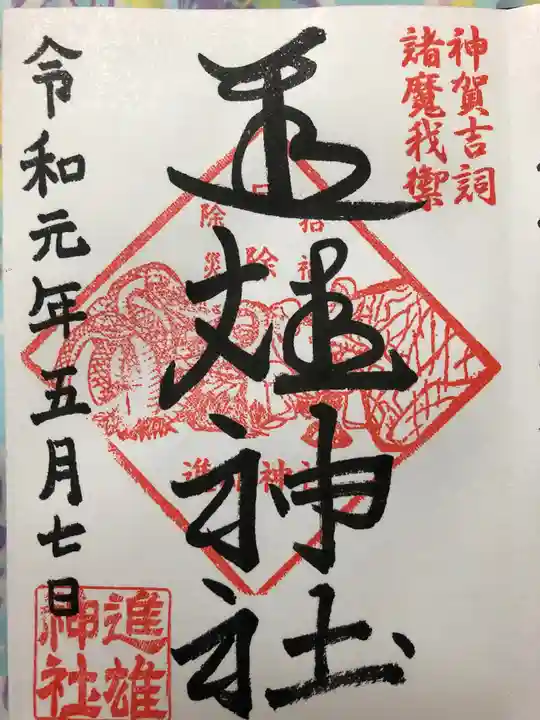 神賀吉詞
諸魔我禦
進雄神社
除災
令和元年五月七日
進雄
神社